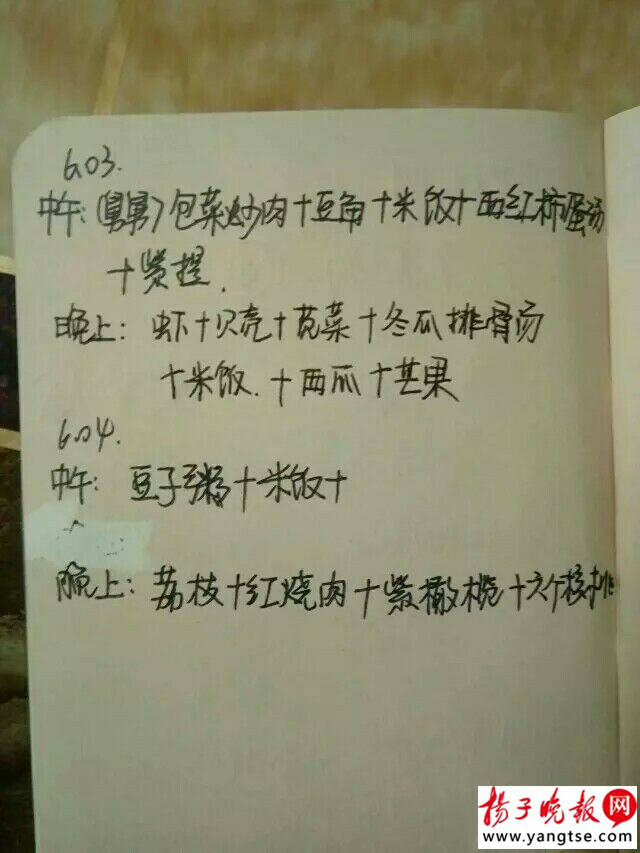 6.03.
中午：（舅舅）包菜炒肉＋豆角＋米饭＋西红柿蛋汤
＋紫提．
晚上：虾＋贝壳＋苋菜＋冬瓜排骨汤
＋米饭．＋西瓜＋芒果
6.04.
中午：豆子粥＋米饭＋
晚上：荔枝＋红烧肉＋紫橄榄＋六个核桃
扬子晚报网
www.yangtse.com